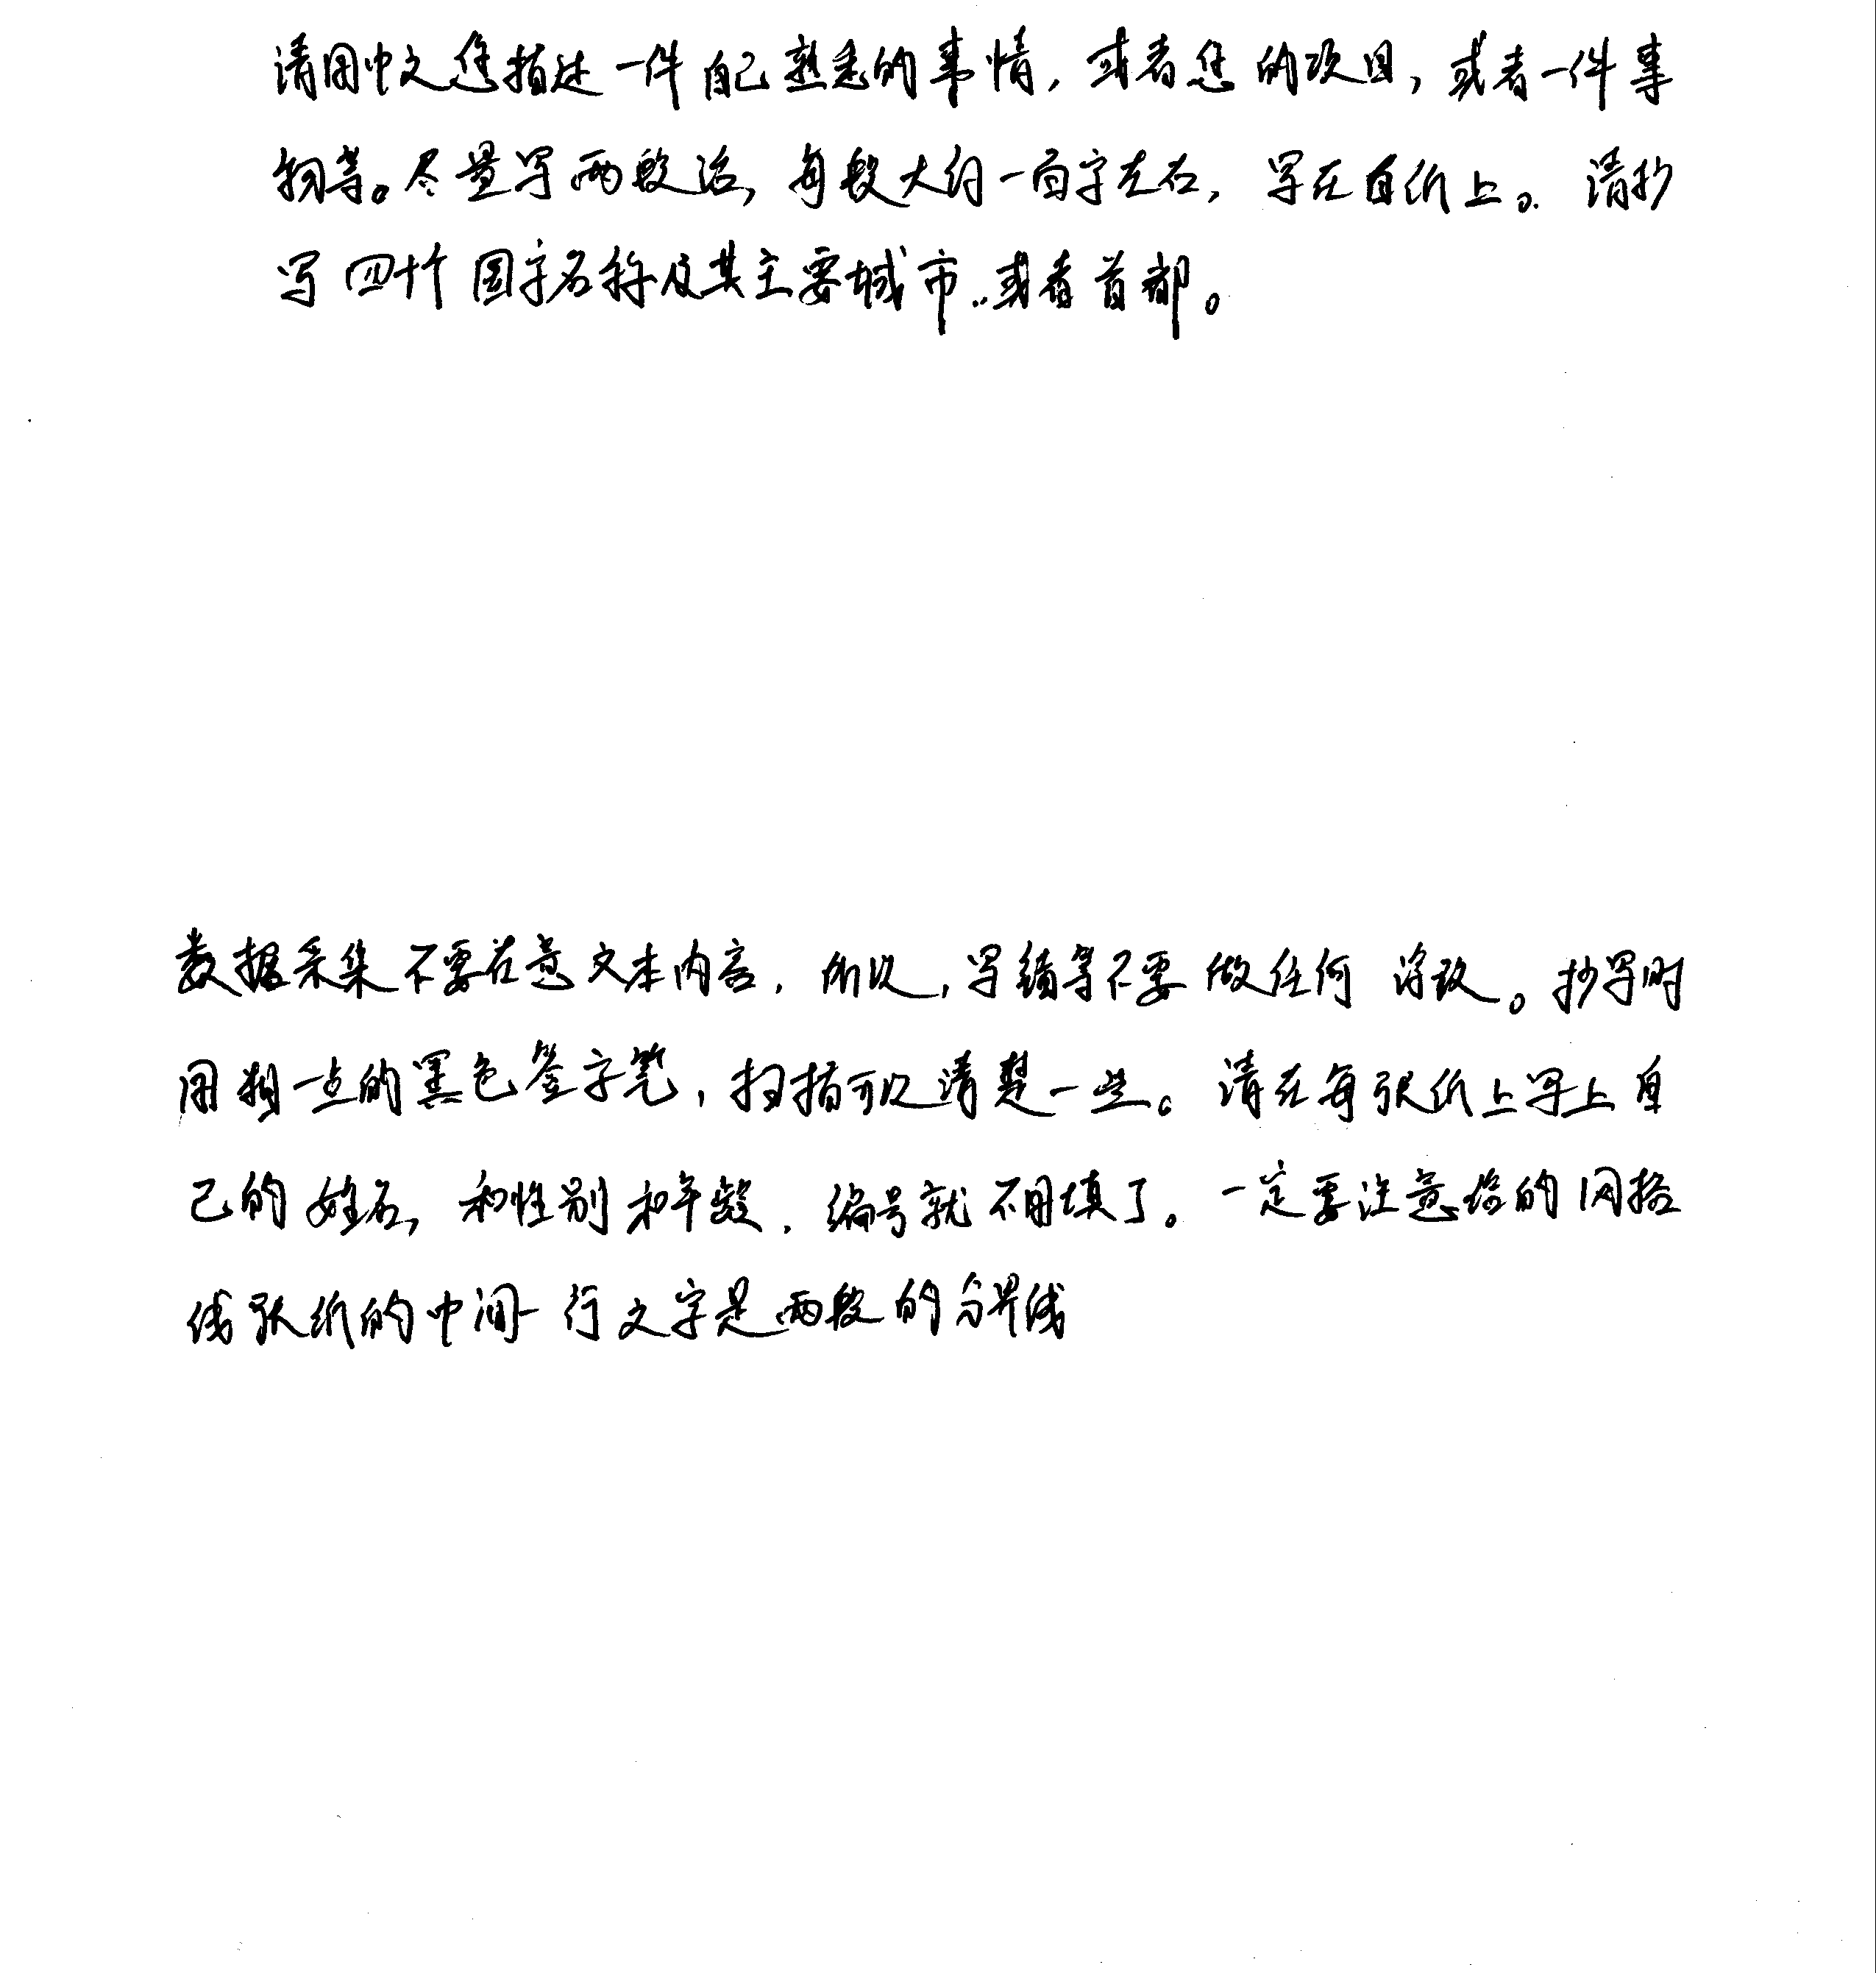 请用中文您描述一件自己熟悉的事情，或者您的项目，或者一件事
物等。尽量写两段话，每段大约一百字左右，写在白纸上。请抄
写四十个国家名称及其主要城市..或者首都。
数据采集不要在意文本内容，所以，写错等不要做任何涂改。抄写时
用粗一点的黑色签字笔，扫描可以清楚一些。请在每张纸上写上自
己的姓名，和性别和年龄，编号就不用填了。一定要注意您的网格
线张纸的中间一行文字是两段的分界线